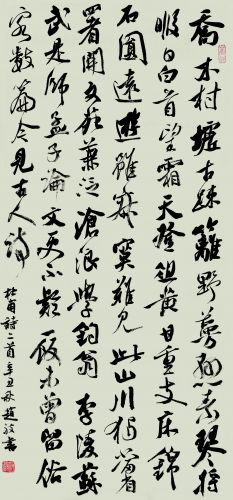 喬木村墟古疎籬野蔓懸素琴将
暇日白首望霜天登俎黄甘重支床錦
石圓遠遊雖寂寞難見此山川獨當省
署開文苑兼泛滄浪學釣翁李陵蘇
武是師孟子論文更不疑一飯未曾留俗
客數篇今見古人詩
杜甫詩二首辛丑秋趙書